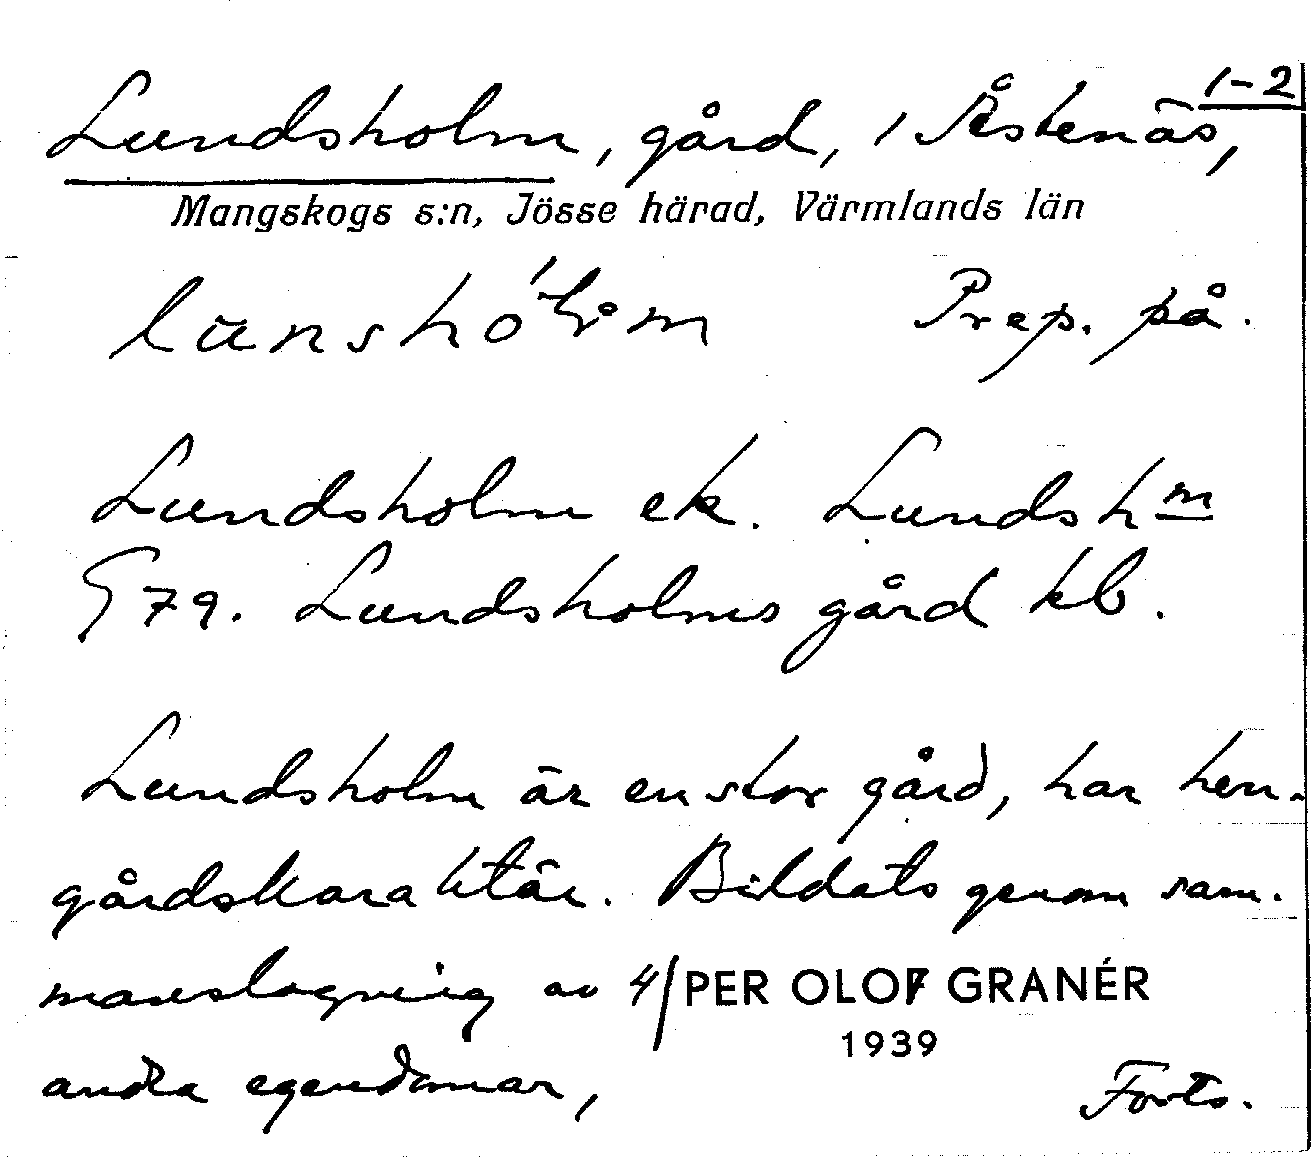 1-2
Lundsholm, gård, i Åstenäs,
Mangskogs s:n, Jösse härad, Värmlands län
Prep. på.
Lundsholm ek. Lundshm
G 79. Lundsholms gård kb.
Lundsholm är en stor gård, har herr-
gårdskaraktär. Bildats genom sam-
manslagning av 4/ PER OLOF GRANÉR
1939
andra egendomar, Forts.